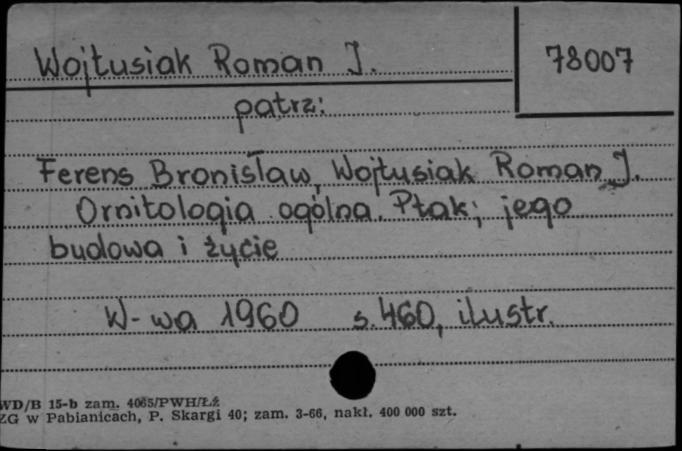 Wojtusiak Roman J. 78007
patrz:
Ferens Bronisław, Wojtusiak Roman J.
Ornitologia ogólna. Ptak; jego
budowa i życie
W-wa 1960 s. 460, ilustr.
WD/B 15-b zam. 4065/PWH/Łź
ZG w Pabianicach, P. Skargi 40; zam. 3-66, nakł. 400 000 szt.